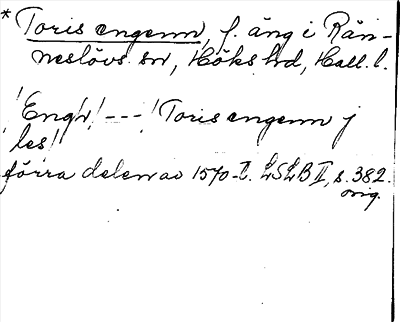 * Toris engenn, f. äng i Rän-
neslövs sn, Höks hd, Hall. l.
! Engh! --- ! Toris engenn j
les!
förra delen av 1570-t. LSLB II, s. 382.
orig.